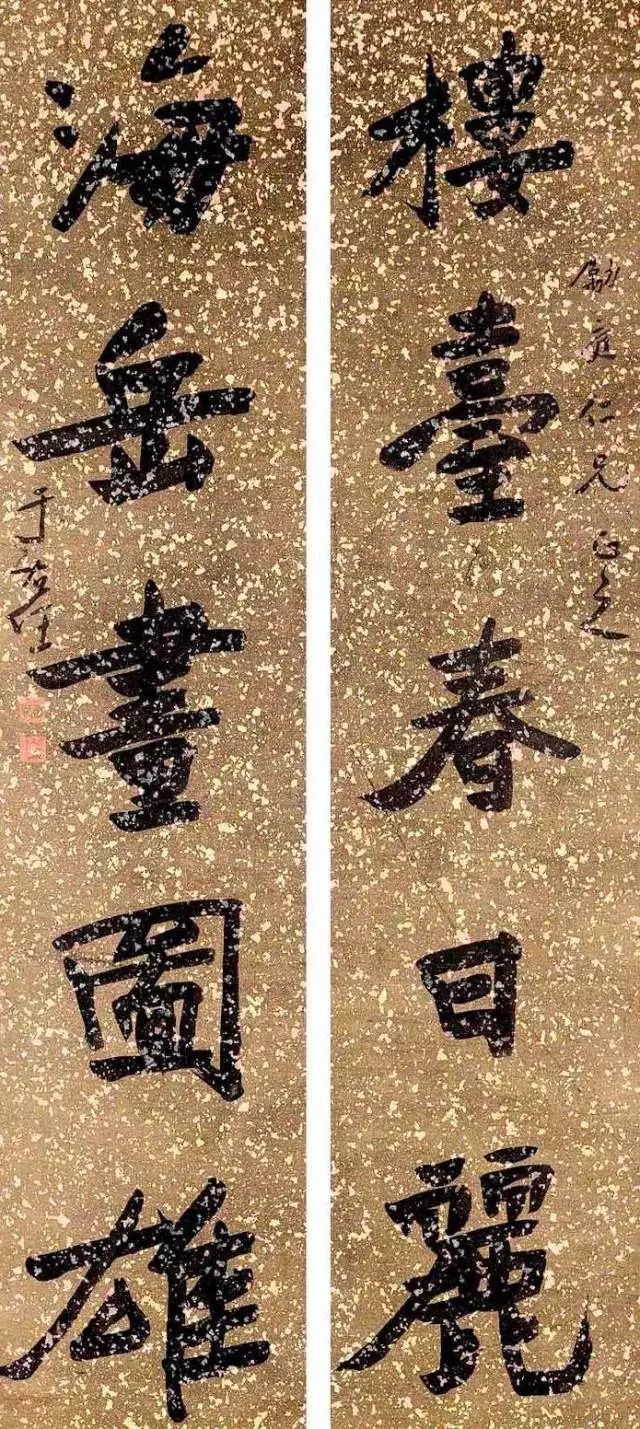 樓臺春日麗
仁兄正之
海岳畫圖雄
于右任